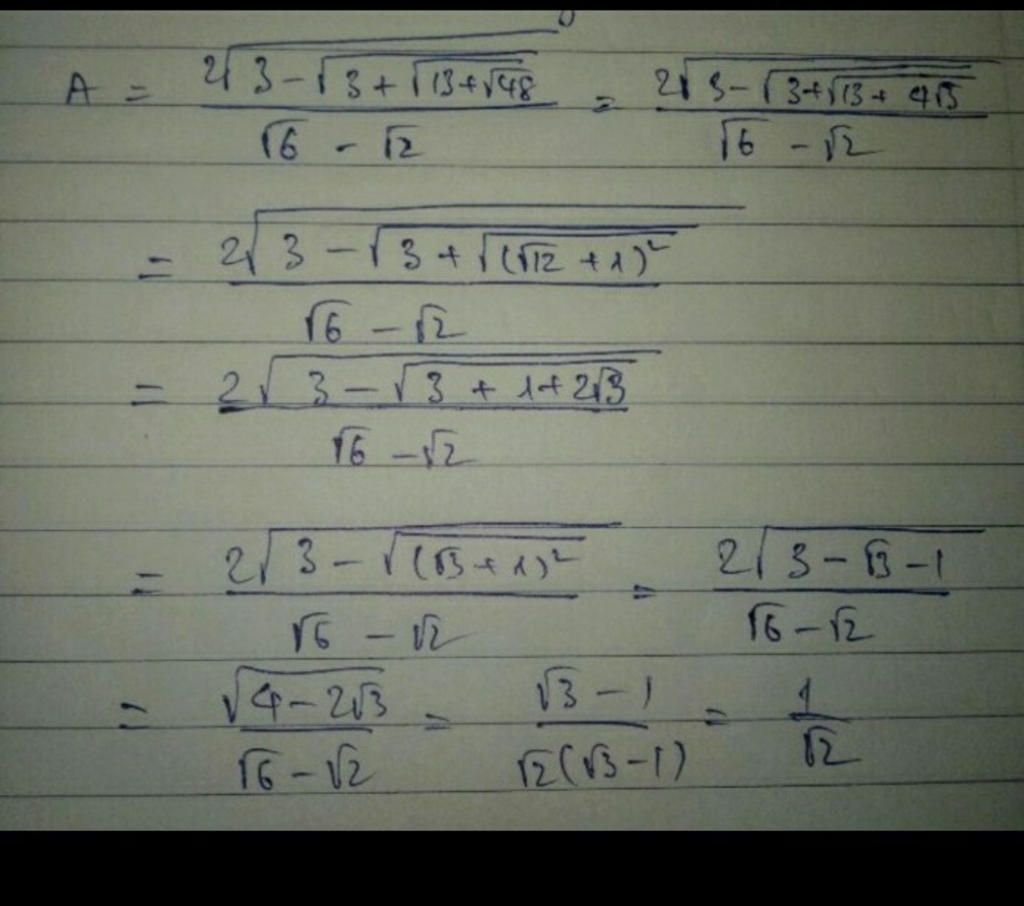 A = \frac{2\sqrt{3-\sqrt{3+\sqrt{13+\sqrt{48}}}}}{\sqrt{6}-\sqrt{2}} = \frac{2\sqrt{3-\sqrt{3+\sqrt{13+4\sqrt{3}}}}}{\sqrt{6}-\sqrt{2}}
= \frac{2\sqrt{3-\sqrt{3+\sqrt{(\sqrt{12}+1)^2}}}}{\sqrt{6}-\sqrt{2}}
= \frac{2\sqrt{3-\sqrt{3+1+2\sqrt{3}}}}{\sqrt{6}-\sqrt{2}}
= \frac{2\sqrt{3-\sqrt{(\sqrt{3}+1)^2}}}{\sqrt{6}-\sqrt{2}} = \frac{2\sqrt{3-\sqrt{3}-1}}{\sqrt{6}-\sqrt{2}}
= \frac{\sqrt{4-2\sqrt{3}}}{\sqrt{6}-\sqrt{2}} = \frac{\sqrt{3}-1}{\sqrt{2}(\sqrt{3}-1)} = \frac{1}{\sqrt{2}}